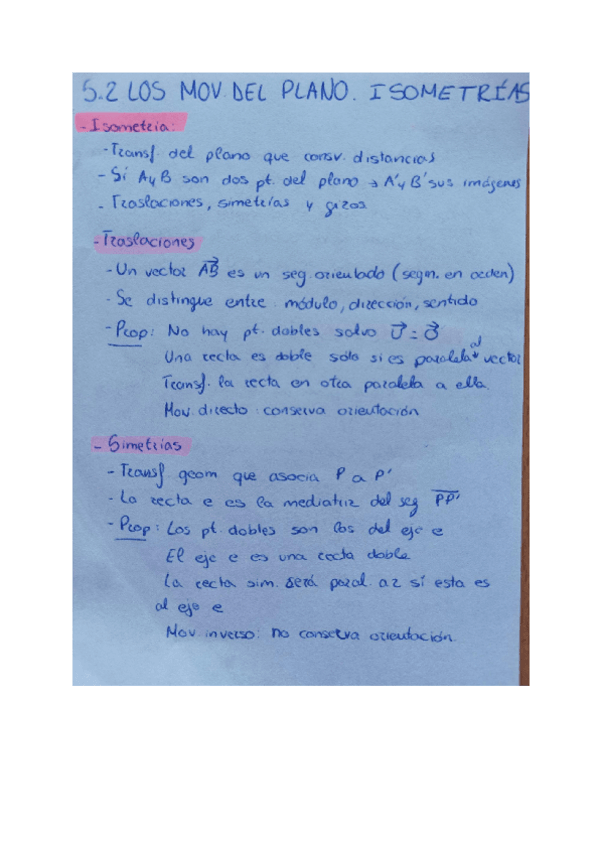 5.2 LOS MOV. DEL PLANO. ISOMETRÍAS
- Isometria:
- Transf. del plano que consv. distancias
- Si A y B son dos pt. del plano → A' y B' sus imágenes
- Traslaciones, simetrías y giros
- Traslaciones
- Un vector AB es un seg. orientado (segm. en orden)
- Se distingue entre módulo, dirección, sentido
- Prop: No hay pt. dobles salvo U = O
Una recta es doble sólo si es paralela al vector
Transf. la recta en otra paralela a ella
Mov. directo: conserva orientación
- Simetrías
- Transf. geom que asocia P a P'
- La recta e es la mediatriz del seg PP'
- Prop: Los pt. dobles son los del eje e
El eje e es una recta doble
La recta sim. será paral. a r si esta es
al eje e
Mov. inverso: no conserva orientación.